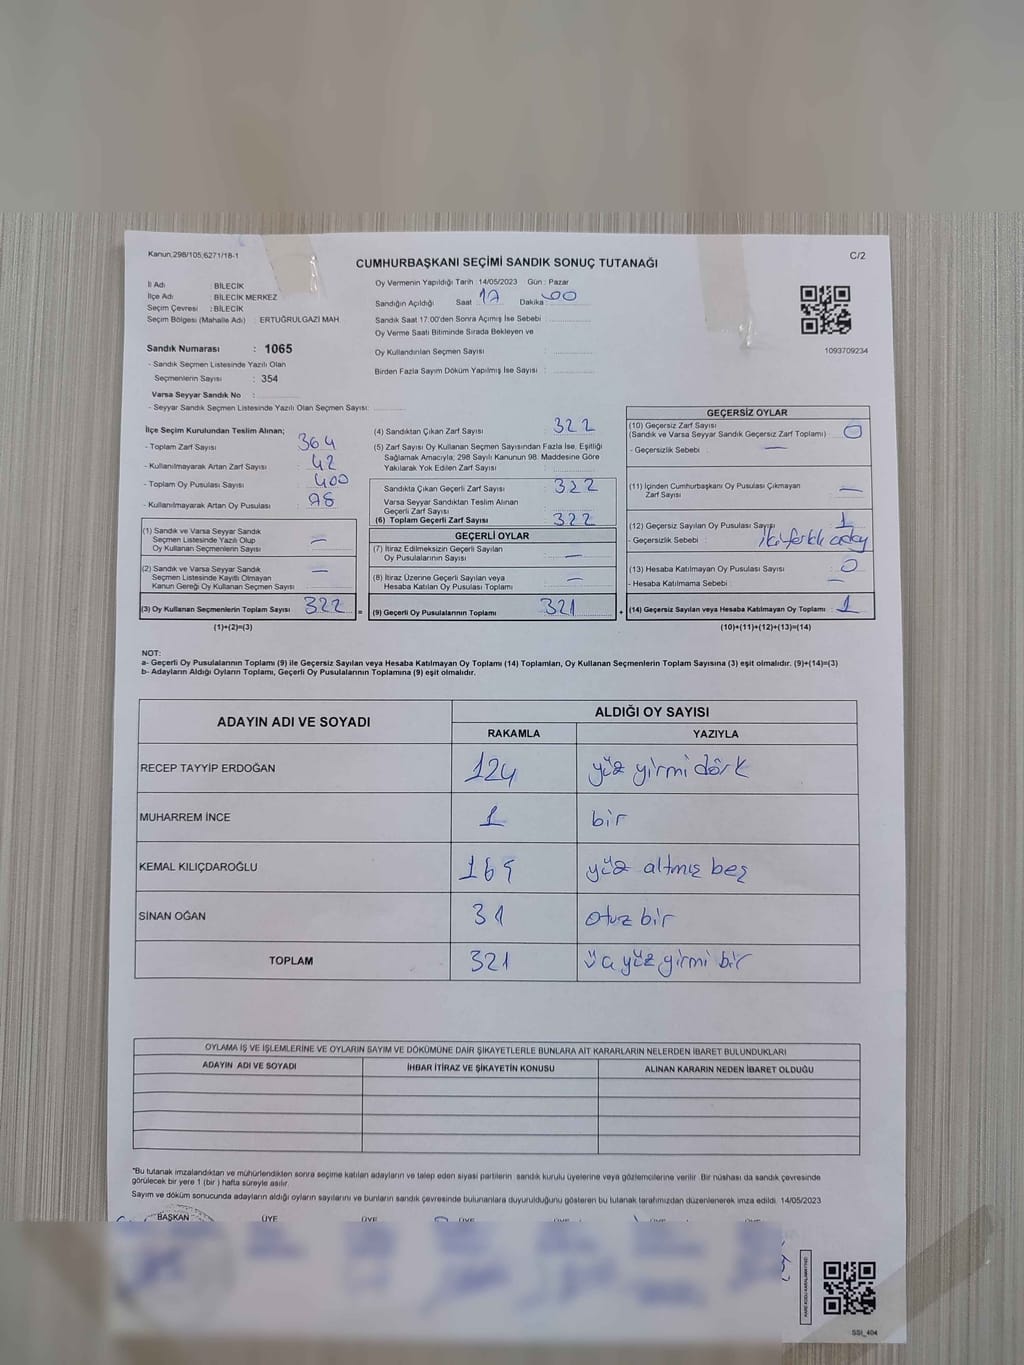 Kanun;298/105;6271/18-1
C/2
CUMHURBAŞKANI SEÇİMİ SANDIK SONUÇ TUTANAĞI
İl Adı : BİLECİK
İlçe Adı : BİLECİK MERKEZ
Seçim Çevresi : BİLECİK
Seçim Bölgesi (Mahalle Adı) : ERTUĞRULGAZİ MAH.
Oy Vermenin Yapıldığı Tarih 14/05/2023 Gün : Pazar
Sandığın Açıldığı Saat 17 Dakika 00
Sandık Saat 17:00'den Sonra Açımış İse Sebebi
Oy Verme Saati Bitiminde Sırada Bekleyen ve
Oy Kullandırılan Seçmen Sayısı :
Birden Fazla Sayım Döküm Yapılmış İse Sayısı :
1093709234
Sandık Numarası : 1065
- Sandık Seçmen Listesinde Yazılı Olan
Seçmenlerin Sayısı : 354
Varsa Seyyar Sandık No :
- Seyyar Sandık Seçmen Listesinde Yazılı Olan Seçmen Sayısı:
İlçe Seçim Kurulundan Teslim Alınan;
- Toplam Zarf Sayısı : 364
- Kullanılmayarak Artan Zarf Sayısı : 42
- Toplam Oy Pusulası Sayısı : 400
- Kullanılmayarak Artan Oy Pusulası : 78
(1) Sandık ve Varsa Seyyar Sandık
Seçmen Listesinde Yazılı Olup
Oy Kullanan Seçmenlerin Sayısı : —
(2) Sandık ve Varsa Seyyar Sandık
Seçmen Listesinde Kayıtlı Olmayan
Kanun Gereği Oy Kullanan Seçmen Sayısı : —
(3) Oy Kullanan Seçmenlerin Toplam Sayısı : 322 =
(1)+(2)=(3)
(4) Sandıktan Çıkan Zarf Sayısı : 322
(5) Zarf Sayısı Oy Kullanan Seçmen Sayısından Fazla İse, Eşitliği
Sağlamak Amacıyla; 298 Sayılı Kanunun 98. Maddesine Göre
Yakılarak Yok Edilen Zarf Sayısı :
Sandıkta Çıkan Geçerli Zarf Sayısı : 322
Varsa Seyyar Sandıktan Teslim Alınan
Geçerli Zarf Sayısı :
(6) Toplam Geçerli Zarf Sayısı : 322
GEÇERLİ OYLAR
(7) İtiraz Edilmeksizin Geçerli Sayılan
Oy Pusulalarının Sayısı : —
(8) İtiraz Üzerine Geçerli Sayılan veya
Hesaba Katılan Oy Pusulası Sayısı : —
(9) Geçerli Oy Pusulalarının Toplamı : 321 +
GEÇERSİZ OYLAR
(10) Geçersiz Zarf Sayısı : 0
(Sandık ve Varsa Seyyar Sandık Geçersiz Zarf Toplamı)
- Geçersizlik Sebebi : —
(11) İçinden Cumhurbaşkanı Oy Pusulası Çıkmayan
Zarf Sayısı : —
(12) Geçersiz Sayılan Oy Pusulası Sayısı : 1
- Geçersizlik Sebebi : iki farklı aday
(13) Hesaba Katılmayan Oy Pusulası Sayısı : 0
- Hesaba Katılmama Sebebi : —
(14) Geçersiz Sayılan veya Hesaba Katılmayan Oy Toplamı : 1
(10)+(11)+(12)+(13)=(14)
NOT:
a- Geçerli Oy Pusulalarının Toplamı (9) ile Geçersiz Sayılan veya Hesaba Katılmayan Oy Toplamı (14) Toplamları, Oy Kullanan Seçmenlerin Toplam Sayısına (3) eşit olmalıdır. (9)+(14)=(3)
b- Adayların Aldığı Oyların Toplamı, Geçerli Oy Pusulalarının Toplamına (9) eşit olmalıdır.
ADAYIN ADI VE SOYADI ALDIĞI OY SAYISI
RAKAMLA YAZIYLA
RECEP TAYYİP ERDOĞAN 124 yüz yirmi dört
MUHARREM İNCE 1 bir
KEMAL KILIÇDAROĞLU 165 yüz altmış beş
SİNAN OĞAN 31 otuz bir
TOPLAM 321 üç yüz yirmi bir
OYLAMA İŞ VE İŞLEMLERİNE VE OYLARIN SAYIM VE DÖKÜMÜNE DAİR ŞİKAYETLERLE BUNLARA AİT KARARLARIN NELERDEN İBARET BULUNDUKLARI
ADAYIN ADI VE SOYADI İHBAR İTİRAZ VE ŞİKAYETİN KONUSU ALINAN KARARIN NEDEN İBARET OLDUĞU
*Bu tutanak imzalandıktan ve mühürlendikten sonra seçime katılan adayların ve talep eden siyasi partilerin sandık kurulu üyelerine veya gözlemcilerine verilir. Bir nüshası da sandık çevresinde
görülecek bir yere 1 (bir) hafta süreyle asılır.
Sayım ve döküm sonucunda adayların aldığı oyların sayılarını ve bunların sandık çevresinde bulunanlara duyurulduğunu gösteren bu tutanak tarafımızdan düzenlenerek imza edildi. 14/05/2023
BAŞKAN ÜYE ÜYE ÜYE ÜYE ÜYE ÜYE
SSI_404